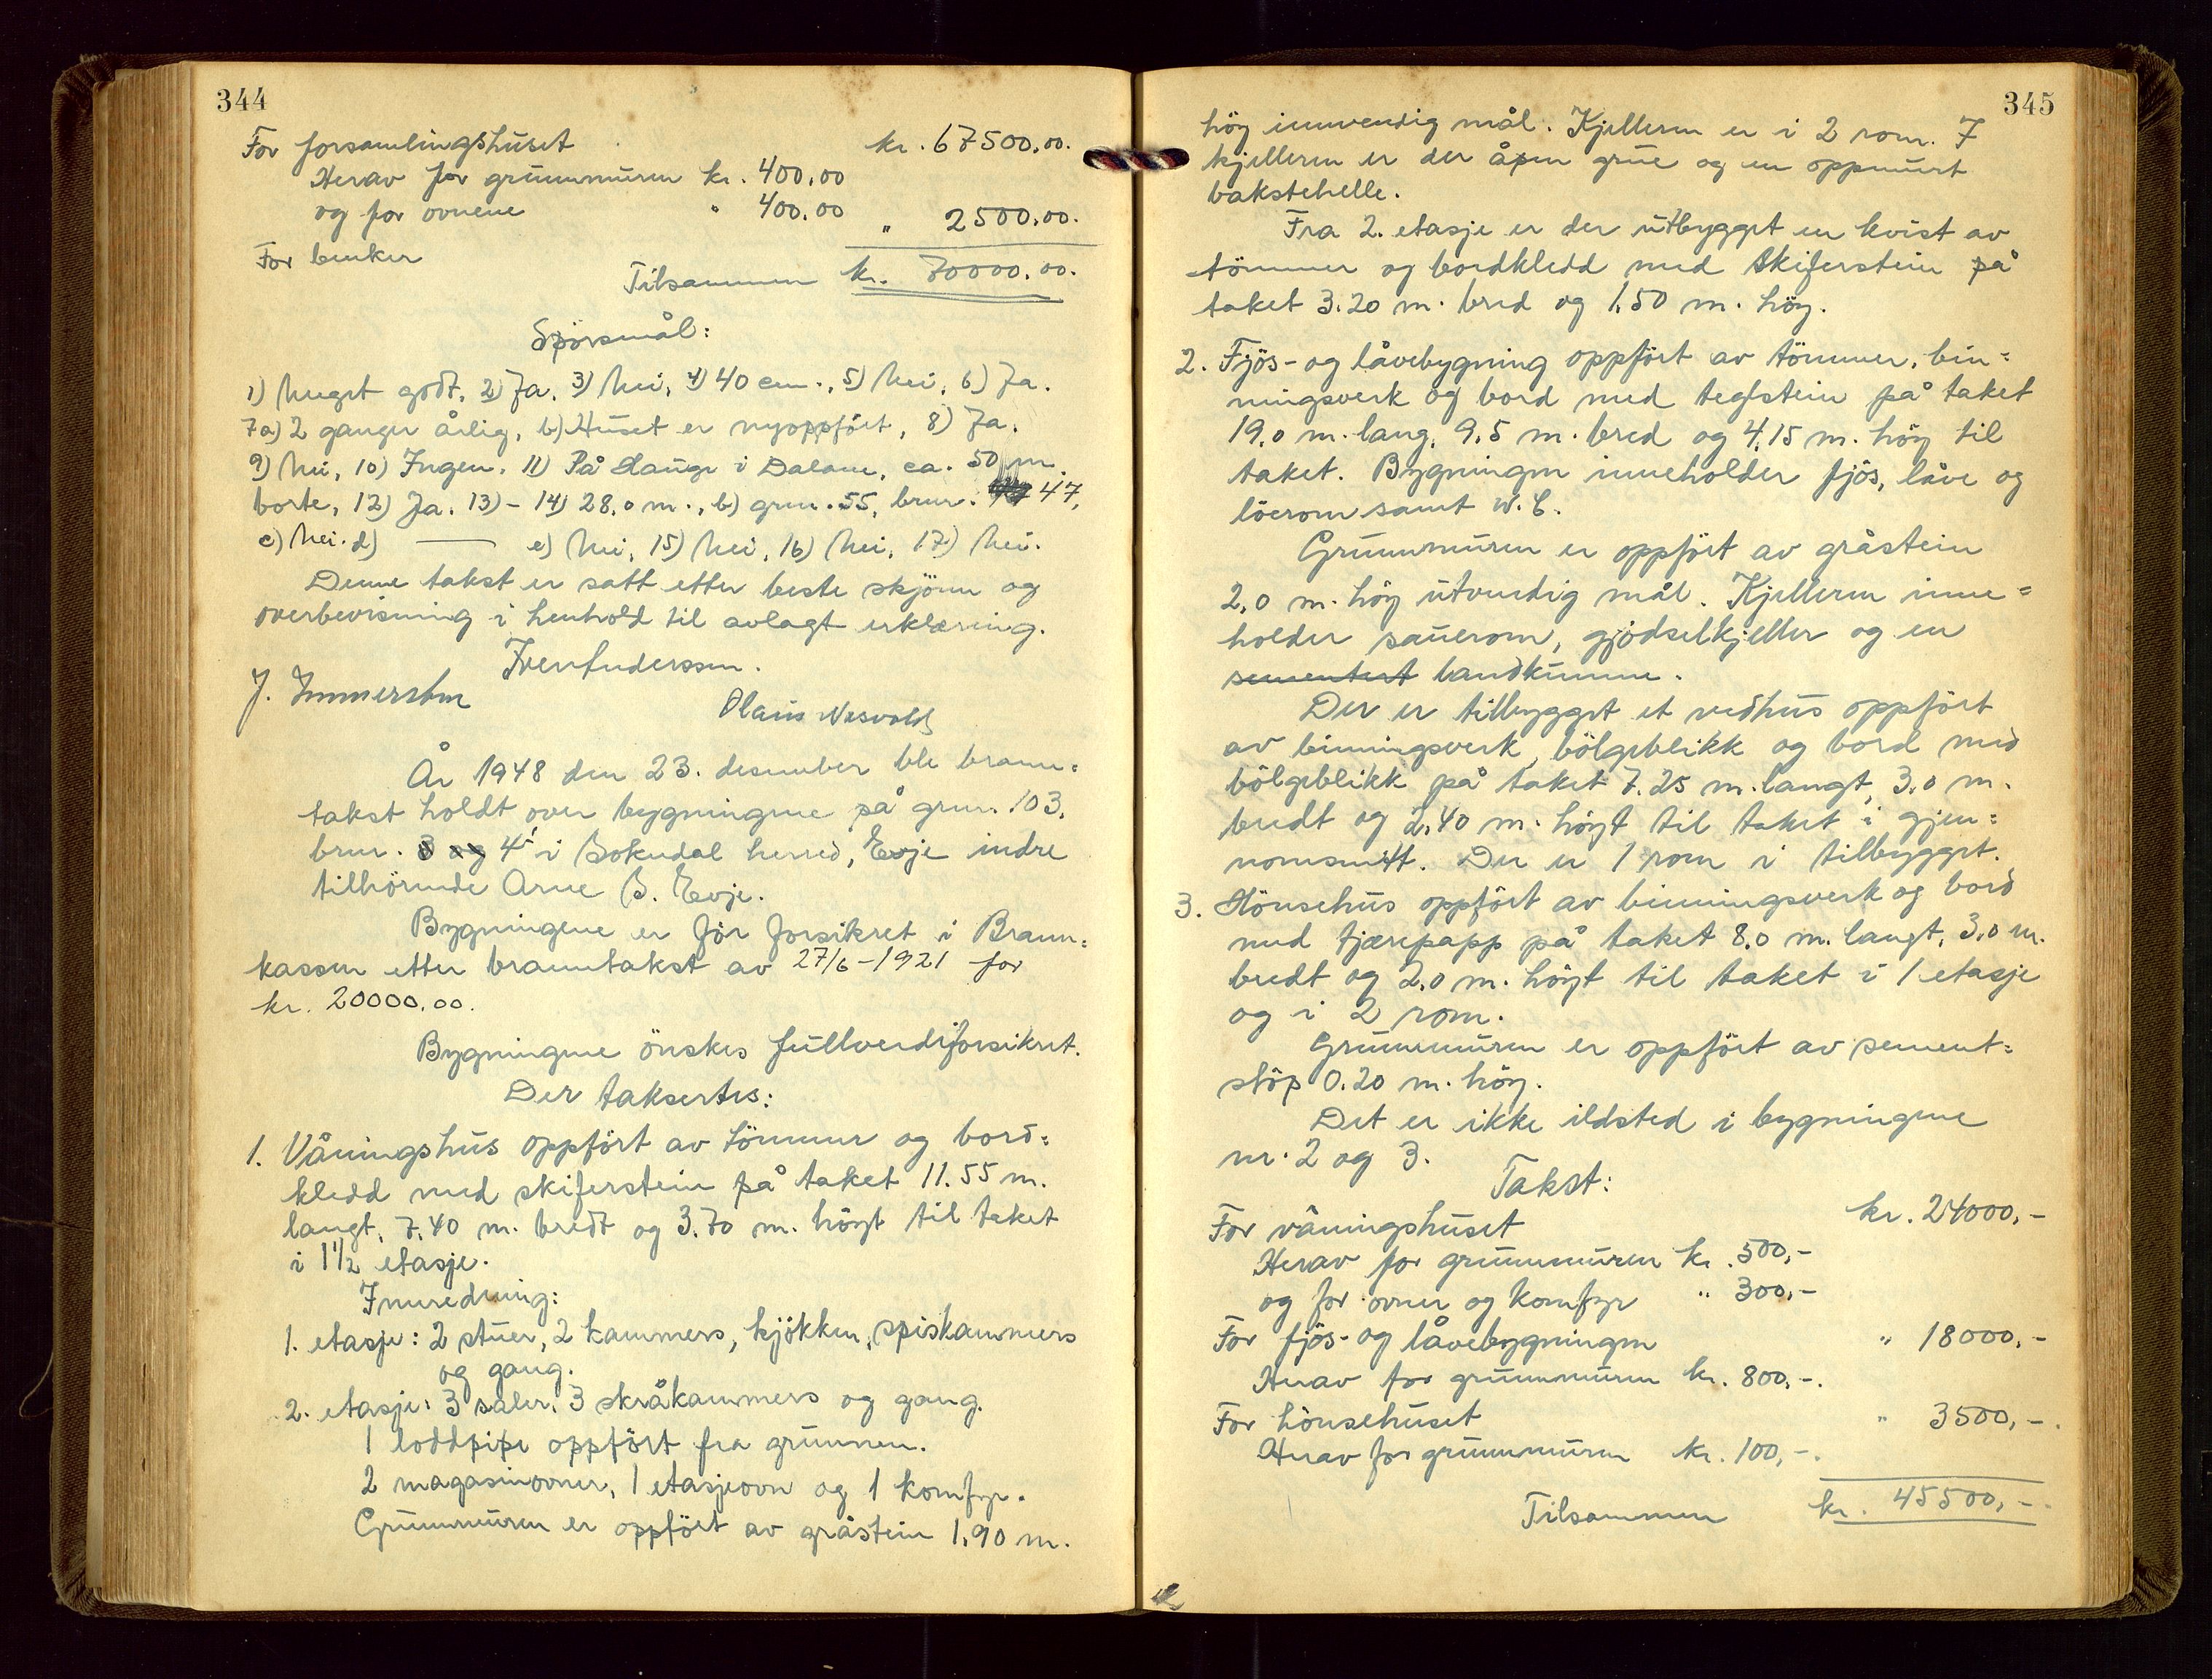 344
For forsamlingshuset kr. 67500.00.
Herav for grunnmuren kr. 400.00
og for ovnene " 400.00
For benker " 2500.00.
Tilsammen kr. 70000.00.
Spörsmål:
1) Meget godt, 2) Ja, 3) Nei, 4) 40 cm., 5) Nei, 6) Ja.
7a) 2 ganger årlig, b) Huset er nyoppfört, 8) Ja.
9) Nei, 10) Ingen. 11) På Hauge i Dalane, ca. 50 m.
borte, 12) Ja. 13) – 14) 28.0 m., b) gnr. 55, bnr. 47,
c) Nei. d) — e) Nei, 15) Nei, 16) Nei, 17) Nei.
Denne takst er satt etter beste skjönn og
overbevisning i henhold til avlagt erklæring.
J. Immerstein Olaus Nesvold
År 1948 den 23. desember ble brann=
takst holdt over bygningene på gnr. 103,
bnr. 3 og 4 i Sokndal herred, Evje indre
tilhörende Arne S. Evje.
Bygningene er för forsikret i Brann=
kassen etter branntakst av 27/6-1921 for
kr. 20000.00.
Bygningene önskes fullverdiforsikret.
Der taksertes:
1. Våningshus oppfört av tömmer og bord=
kledd med skiferstein på taket 11.55 m.
langt, 7.40 m. bredt og 3.70 m. höyt til taket
i 1 1/2 etasje.
Innredning:
1. etasje: 2 stuer, 2 kammers, kjökken, spiskammers
og gang.
2. etasje: 3 saler, 3 skråkammers og gang.
1 loddpipe oppfört fra grunnen.
2 magasinovner, 1 etasjeovn og 1 komfyr.
Grunnmuren er oppfört av gråstein 1,90 m.
345
höy innvendig mål. Kjelleren er i 2 rom. I
kjelleren er der åpen grue og en oppmurt
bakstehelle.
Fra 2. etasje er der utbygget en kvist av
tömmer og bordkledd med skiferstein på
taket 3.20 m. bred og 1,50 m. höy.
2. Fjös- og låvebygning oppfört av tömmer, bin=
ningsverk og bord med teglstein på taket
19,0 m. lang, 9,5 m. bred og 4,15 m. höy til
taket. Bygningen inneholder fjös, låve og
löerom samt W.C.
Grunnmuren er oppfört av gråstein
2,0 m. höy utvendig mål. Kjelleren inne=
holder sauerom, gjödselkjeller og en
sementert landkumme.
Der er tilbygget et vedhus oppfört
av binningsverk, bölgeblikk og bord med
bölgeblikk på taket 7.25 m. langt, 3,0 m.
bredt og 2,40 m. höyt til taket i gjen=
nomsnitt. Der er 1 rom i tilbygget.
3. Hönsehus oppfört av binningsverk og bord
med tjærepapp på taket 8,0 m. langt, 3,0 m.
bredt og 2,0 m. höyt til taket i 1 etasje
og i 2 rom.
Grunnmuren er oppfört av sement=
stöp 0.20 m. höy.
Det er ikke ildsted i bygningene
nr. 2 og 3.
Takst:
For våningshuset kr. 24000,-
Herav for grunnmuren kr. 500,-
og for ovner og komfyr " 300,-
For fjös- og låvebygningen " 18000,-
Herav for grunnmuren kr. 800,-.
For hönsehuset " 3500,-.
Herav for grunnmuren kr. 100,-.
Tilsammen kr. 45500,-